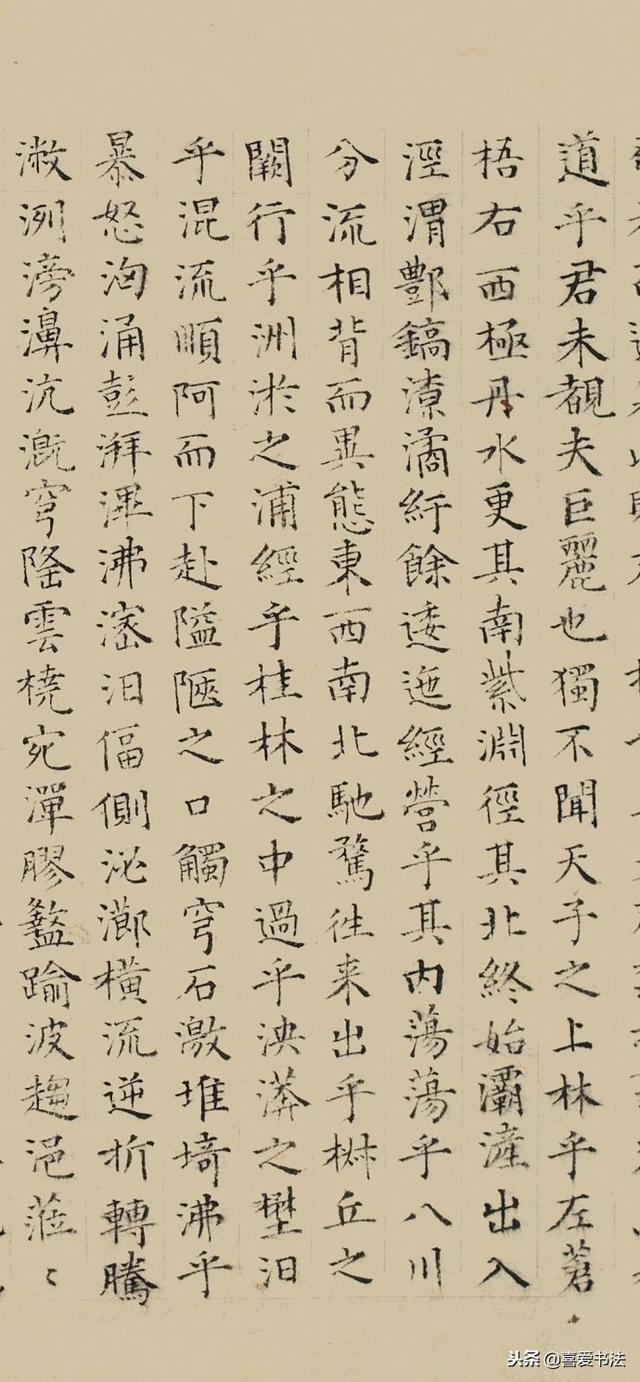 道乎君未覩夫巨麗也獨不聞天子之上林乎左蒼
梧右西極丹水更其南紫淵徑其北終始灞滻出入
涇渭酆鎬潦潏紆餘逶迤經營乎其内蕩蕩乎八川
分流相背而異態東西南北馳騖往来出乎椒丘之
闕行乎洲淤之浦經乎桂林之中過乎泱漭之壄汨
乎混流順阿而下赴隘陿之口觸穹石激堆埼沸乎
暴怒洶涌彭湃滭沸滵汨偪側泌瀄橫流逆折轉騰
潎洌滂濞沆溉穹隆雲橈宛潬膠盭踰波趨浥蒞〻
头条 @喜爱书法